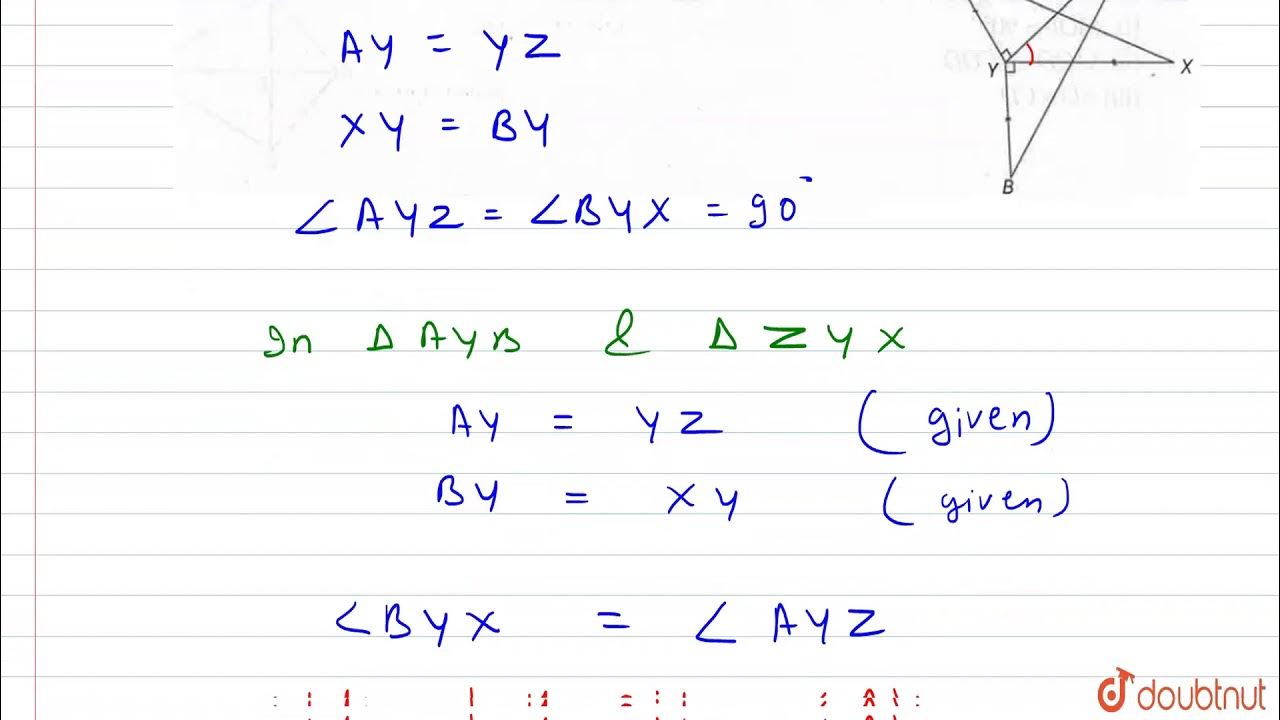 AY = YZ
Y X
XY = BY
B
∠AYZ = ∠BYX = 90°
In Δ AYB & Δ ZYX
AY = YZ (given)
BY = XY (given)
∠BYX = ∠AYZ
doubtnut